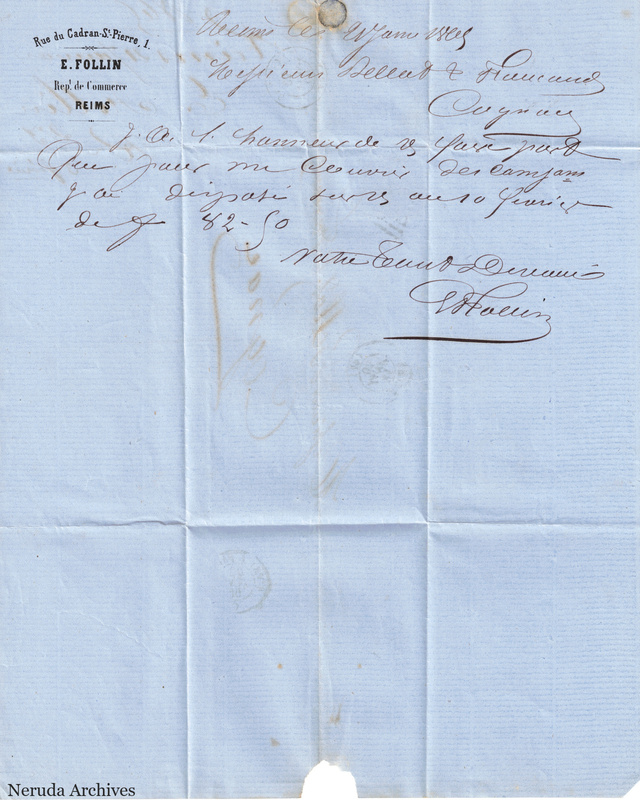 Rue du Cadran-St-Pierre, 1.
E. FOLLIN
Rept. de Commerce
REIMS
Reims le Janv
Messieurs &
Cognac
J'ai l'honneur de vs faire part
Que pour me Couvrir des
j'ai disposé sur vs au 10 février
de f 82-50
Votre tout Dévoué
EFollin
Neruda Archives